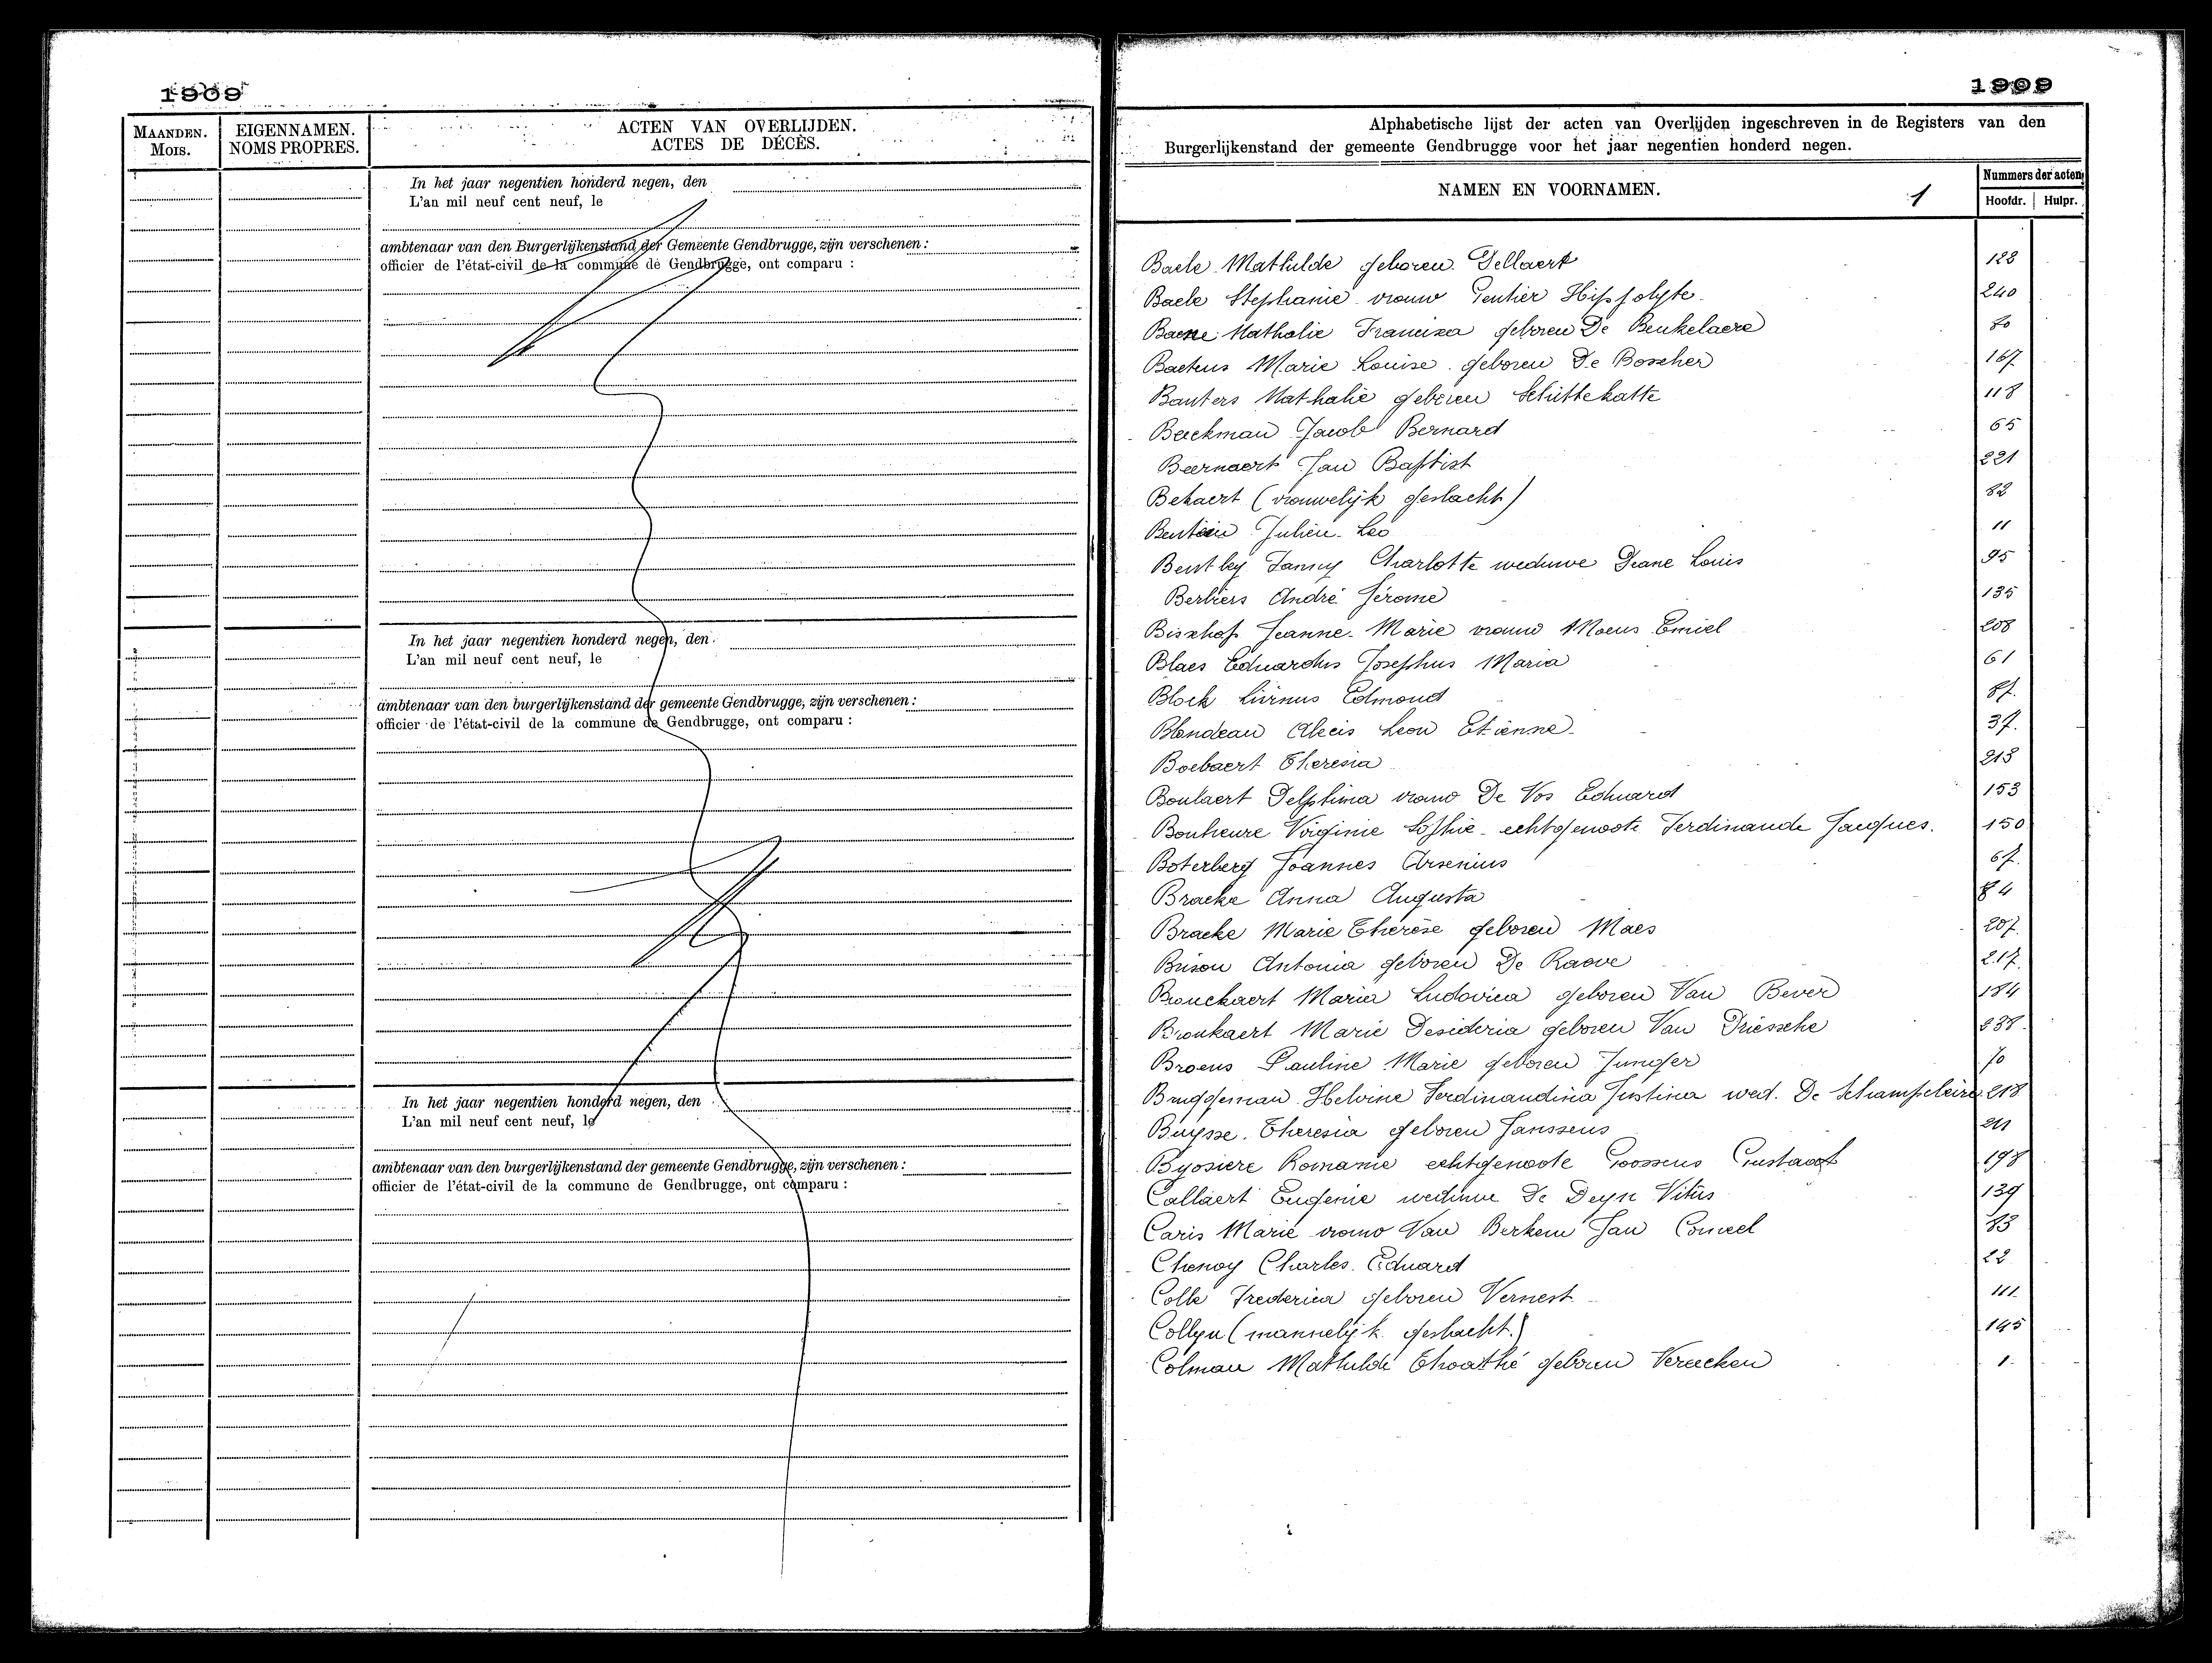 1909
MAANDEN.
MOIS.
EIGENNAMEN.
NOMS PROPRES.
ACTEN VAN OVERLIJDEN.
ACTES DE DÉCÈS.
In het jaar negentien honderd negen, den
L'an mil neuf cent neuf, le
ambtenaar van den Burgerlijkenstand der Gemeente Gendbrugge, zijn verschenen :
officier de l'état-civil de la commune de Gendbrugge, ont comparu :
In het jaar negentien honderd negen, den
L'an mil neuf cent neuf, le
ambtenaar van den burgerlijkenstand der gemeente Gendbrugge, zijn verschenen :
officier de l'état-civil de la commune de Gendbrugge, ont comparu :
In het jaar negentien honderd negen, den
L'an mil neuf cent neuf, le
ambtenaar van den burgerlijkenstand der gemeente Gendbrugge, zijn verschenen :
officier de l'état-civil de la commune de Gendbrugge, ont comparu :
1909
Alphabetische lijst der acten van Overlijden ingeschreven in de Registers van den
Burgerlijkenstand der gemeente Gendbrugge voor het jaar negentien honderd negen.
NAMEN EN VOORNAMEN. 1
Nummers der acten
Hoofdr. Hulpr.
Baele Mathilde geboren Dellaert 128
Baele Stephanie vrouw Gentier Hippolyte 240
Baene Nathalie Francisca geboren De Beukelaere
Baetens Marie Louise geboren De Bosscher 167
Bauters Nathalie geboren Schittekatte 118
Beeckman Jacob Bernard 65
Beernaert Jan Baptist 221
Bekaert (vrouwelijk geslacht) 82
Julien Leo 11
Bentley Fanny Charlotte weduwe Deane Louis 95
Berliers André Jérome 135
Bisschop Jeanne Marie vrouw Moens Emiel 208
Blaes Eduardus Josephus Maria 61
Block Livinus Edmond 87
Blondeau Alexis Leon Etienne 37
Boelaert Theresia 213
Boulaert Delphina vrouw De Vos Eduard 153
Bonheure Virginie Sophie echtgenoote Ferdinande Jacques. 150
Boterberg Joannes Arsenius 67
Bracke Anna Augusta 84
Bracke Marie Thérèse geboren Maes 207
Brison Antonia geboren De Raeve 217
Bronckaert Maria Ludovica geboren Van Bever 184
Bronkaert Marie Desideria geboren Van Driessche 238
Broens Pauline Marie geboren Junger 70
Bruggeman Helvine Ferdinandina Justina wed. De Schampeleire 218
Buysse Theresia geboren Janssens 211
Byosiere Romanie echtgenoote Goossens Gustaaf 198
Callaert Eugenie weduwe De Deyn Vitus 139
Caris Marie vrouw Van Berkem Jan
Chenoy Charles Eduard 22
Colle Frederica geboren Vernest 111
Collyn (mannelijk geslacht.) 145
Colman Mathilde geboren Vereecken 1